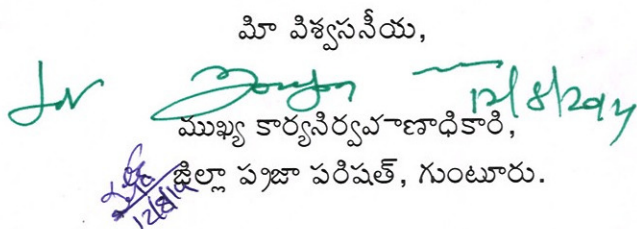 మీ విశ్వసనీయ,
12/8/2014
ముఖ్య కార్యనిర్వహణాధికారి,
జిల్లా ప్రజా పరిషత్, గుంటూరు.